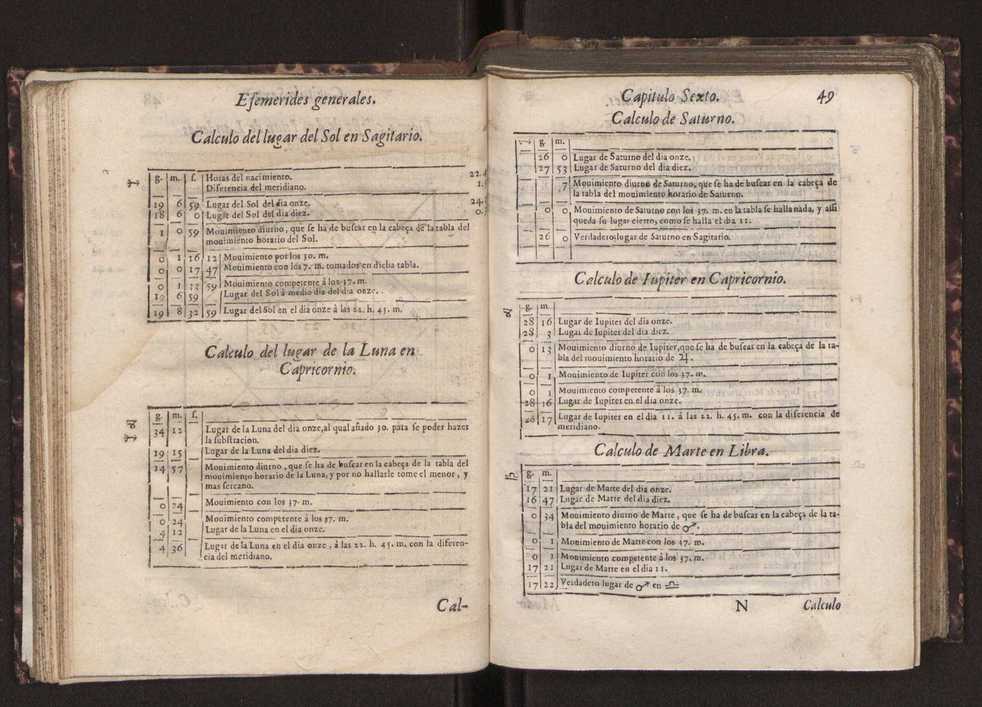 Efemerides generales.
Calculo del lugar del Sol en Sagitario.
g. m. s. Horas del nacimiento. 22.
Diferencia del meridiano. 1.
19 6 59 Lugar del Sol del dia onze. 24.
18 6 0 Lugar del Sol del dia diez. 0.
1 0 59 Mouimiento diurno, que se ha de buscar en la cabeça de la tabla del
mouimiento horario del Sol.
0 1 16 12 Mouimiento por los 30. m.
0 0 17 47 Mouimiento con los 7. m. tomados en dicha tabla.
0 1 33 59 Mouimiento competente á los 37. m.
19 6 59 Lugar del Sol á medio dia del dia onze.
19 8 32 59 Lugar del Sol en el dia onze á las 22. h. 45. m.
Calculo del lugar de la Luna en
Capricornio.
g. m. s.
34 12 Lugar de la Luna del dia onze, al qual añado 30. para se poder hazer
la substracion.
19 15 Lugar de la Luna del dia diez.
14 57 Mouimiento diurno, que se ha de buscar en la cabeça de la tabla del
mouimiento horario de la Luna, y por no hallarle tome el menor, y
mas sercano.
0 24 Mouimiento con los 37. m.
0 24 Mouimiento competente á los 37. m.
4 12 Lugar de la Luna en el dia onze.
4 36 Lugar de la Luna en el dia onze, á las 22. h. 45. m. con la diferen-
cia del meridiano.
Cal-
Capitulo Sexto. 49
Calculo de Saturno.
g. m.
26 0 Lugar de Saturno del dia onze.
27 53 Lugar de Saturno del dia diez.
7 Mouimiento diurno de Saturno, que se ha de buscar en la cabeça de
la tabla del mouimiento horario de Saturno.
0 0 Mouimiento de Saturno con los 37. m. en la tabla se halla nada, y assi
queda su lugar cierto, como se halla el dia 11.
26 0 Verdadero lugar de Saturno en Sagitario.
Calculo de Iupiter en Capricornio.
g. m.
28 16 Lugar de Iupiter del dia onze.
28 3 Lugar de Iupiter del dia diez.
0 13 Mouimiento diurno de Iupiter, que se ha de buscar en la cabeça de la ta-
bla del mouimiento horario de ♃.
0 1 Mouimiento de Iupiter con los 37. m.
0 1 Mouimiento competente á los 37. m.
28 16 Lugar de Iupiter en el dia onze.
28 17 Lugar de Iupiter en el dia 11. á las 22. h. 45. m. con la diferencia de
meridiano.
Calculo de Marte en Libra.
g. m.
17 21 Lugar de Marte del dia onze.
16 47 Lugar de Marte del dia diez.
0 34 Mouimiento diurno de Marte, que se ha de buscar en la cabeça de la ta-
bla del mouimiento horario de ♂.
0 1 Mouimiento de Marte con los 37. m.
0 1 Mouimiento competente á los 37. m.
17 21 Lugar de Marte en el dia 11.
17 22 Verdadero lugar de ♂ en ♎
N Calculo